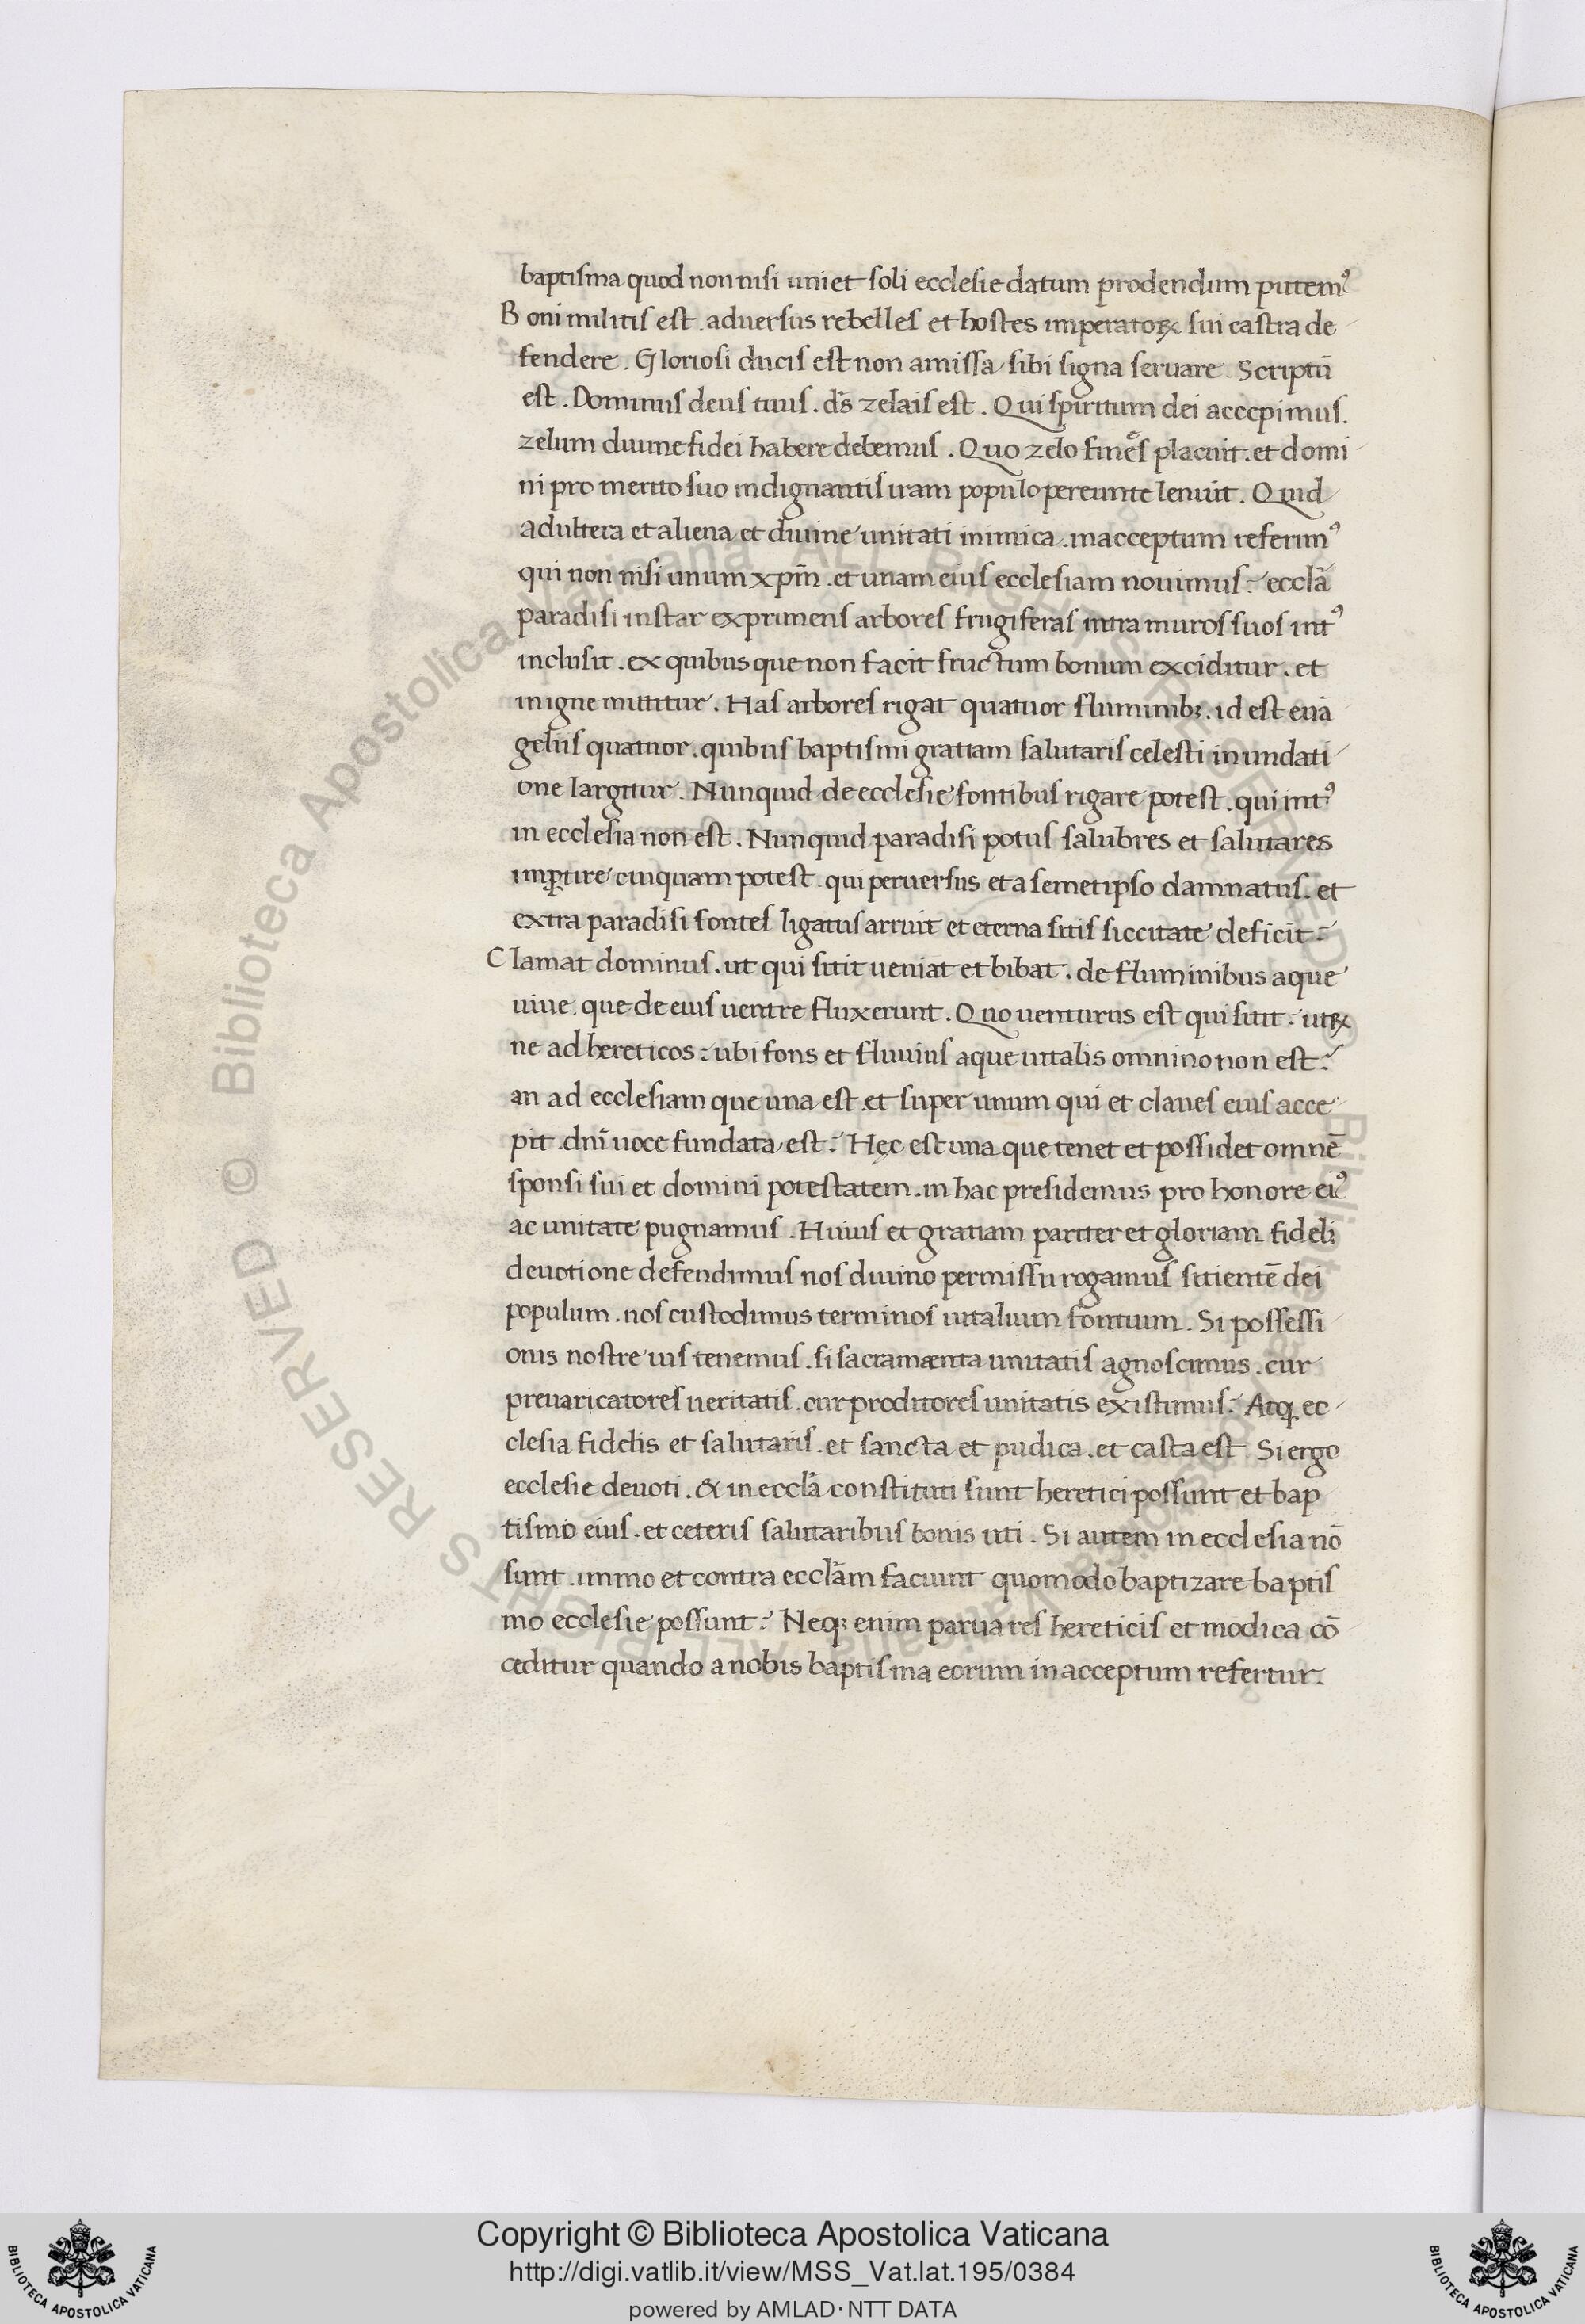 baptisma quod non nisi uni et soli ecclesie datum prodendum putemꝰ
Boni militis est. adversus rebelles et hostes imperatorꝝ sui castra de
fendere. Gloriosi ducis est non amissa sibi signa servare. Scriptū
est. Dominus deus tuus. ds̄ zelais est. Qui spiritum dei accepimus.
zelum divine fidei habere debemus. Quo zelo finees placuit. et domi
ni pro merito suo indignantis iram populo pereunte lenuit. Quid
adultera et aliena et divine unitati inimica. in acceptum referimꝰ
qui non nisi unum xpm̄. et unam eius ecclesiam novimus? ecclā
paradisi instar exprimens arbores frugiferas intra muros suos intꝰ
inclusit. ex quibus que non facit fructum bonum exciditur. et
in igne mittitur. Has arbores rigat quatuor fluminibꝫ. id est euā
geliis quatuor. quibus baptismi gratiam salutaris celesti inundati
one largitur. Nunquid de ecclesie fontibus rigare potest. qui intꝰ
in ecclesia non est. Nunquid paradisi potus salubres et salutares
imꝑtire cuiquam potest. qui perversus et a semetipso damnatus. et
extra paradisi fontes ligatus arruit et eterna sitis siccitate deficit?
Clamat dominus. ut qui sitit veniat et bibat. de fluminibus aque
vive. que de eius ventre fluxerunt. Quo venturus est qui sitit? utꝝ
ne ad hereticos? ubi fons et fluvius aque vitalis omnino non est?
an ad ecclesiam que una est. et super unum qui et claves eius acce
pit. dnī voce fundata est? Hęc est una que tenet et possidet omnē
sponsi sui et domini potestatem. in hac presidemus pro honore eiꝰ
ac unitate pugnamus. Huius et gratiam pariter et gloriam fideli
devotione defendimus nos divino permissu rogamus sitientē dei
populum. nos custodimus terminos vitalium fontium. Si possessi
onis nostre ius tenemus. si sacramænta unitatis agnoscimus. cur
prevaricatores veritatis. cur proditores unitatis existimus? Atqꝫ ec
clesia fidelis et salutaris. et sancta et pudica. et casta est. Si ergo
ecclesie devoti. & in ecclā constituti sunt heretici possunt et bap
tismo eius. et ceteris salutaribus bonis uti. Si autem in ecclesia nō
sunt. immo et contra ecclām faciunt quomodo baptizare baptis
mo ecclesie possunt? Neqꝫ enim parva res hereticis et modica cō
ceditur quando a nobis baptisma eorum in acceptum refertur.
Copyright © Biblioteca Apostolica Vaticana
http://digi.vatlib.it/view/MSS_Vat.lat.195/0384
powered by AMLAD·NTT DATA